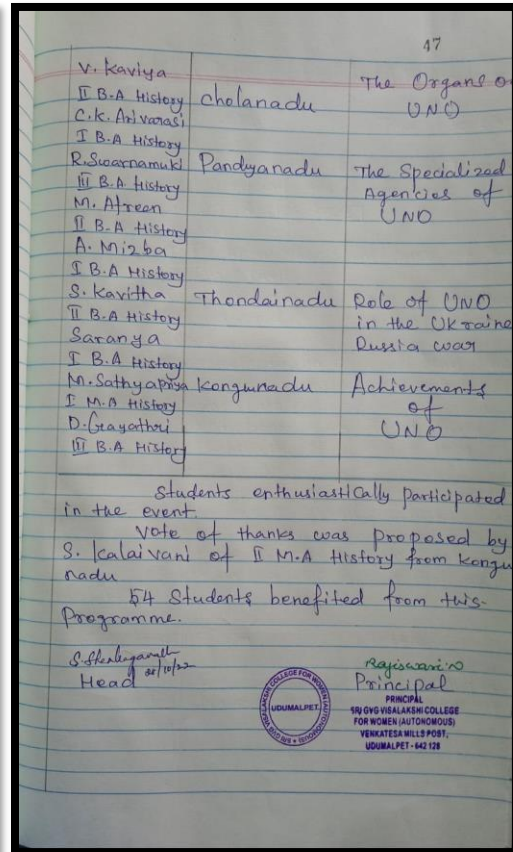 47
V. Kaviya
II B.A History
C.K. Arivarasi
I B.A History
cholanadu
The Organs o
UNO
R. Swarnamuki
III B.A. History
M. Afreen
II B.A History
A. Mizba
I B.A History
Pandyanadu
The Specialized
Agencies of
UNO
S. Kavitha
II B.A History
Saranya
I B.A History
Thondainadu
Role of UNO
in the Ukraine
Russia war
M. Sathyapriya
I M.A History
D. Gayathri
III B.A History
Kongunadu
Achievements
of
UNO
Students enthusiastically participated
in the event.
Vote of thanks was proposed by
S. Kalaivani of II M.A History from kongu
nadu
54 Students benefited from this
Programme.
28/10/22
Head
Rajiswari
Principal
PRINCIPAL
SRI GVG VISALAKSHI COLLEGE
FOR WOMEN (AUTONOMOUS)
VENKATESA MILLS POST,
UDUMALPET - 642 128
SRI GVG VISALAKSHI COLLEGE FOR WOMEN (AUTONOMOUS)
UDUMALPET